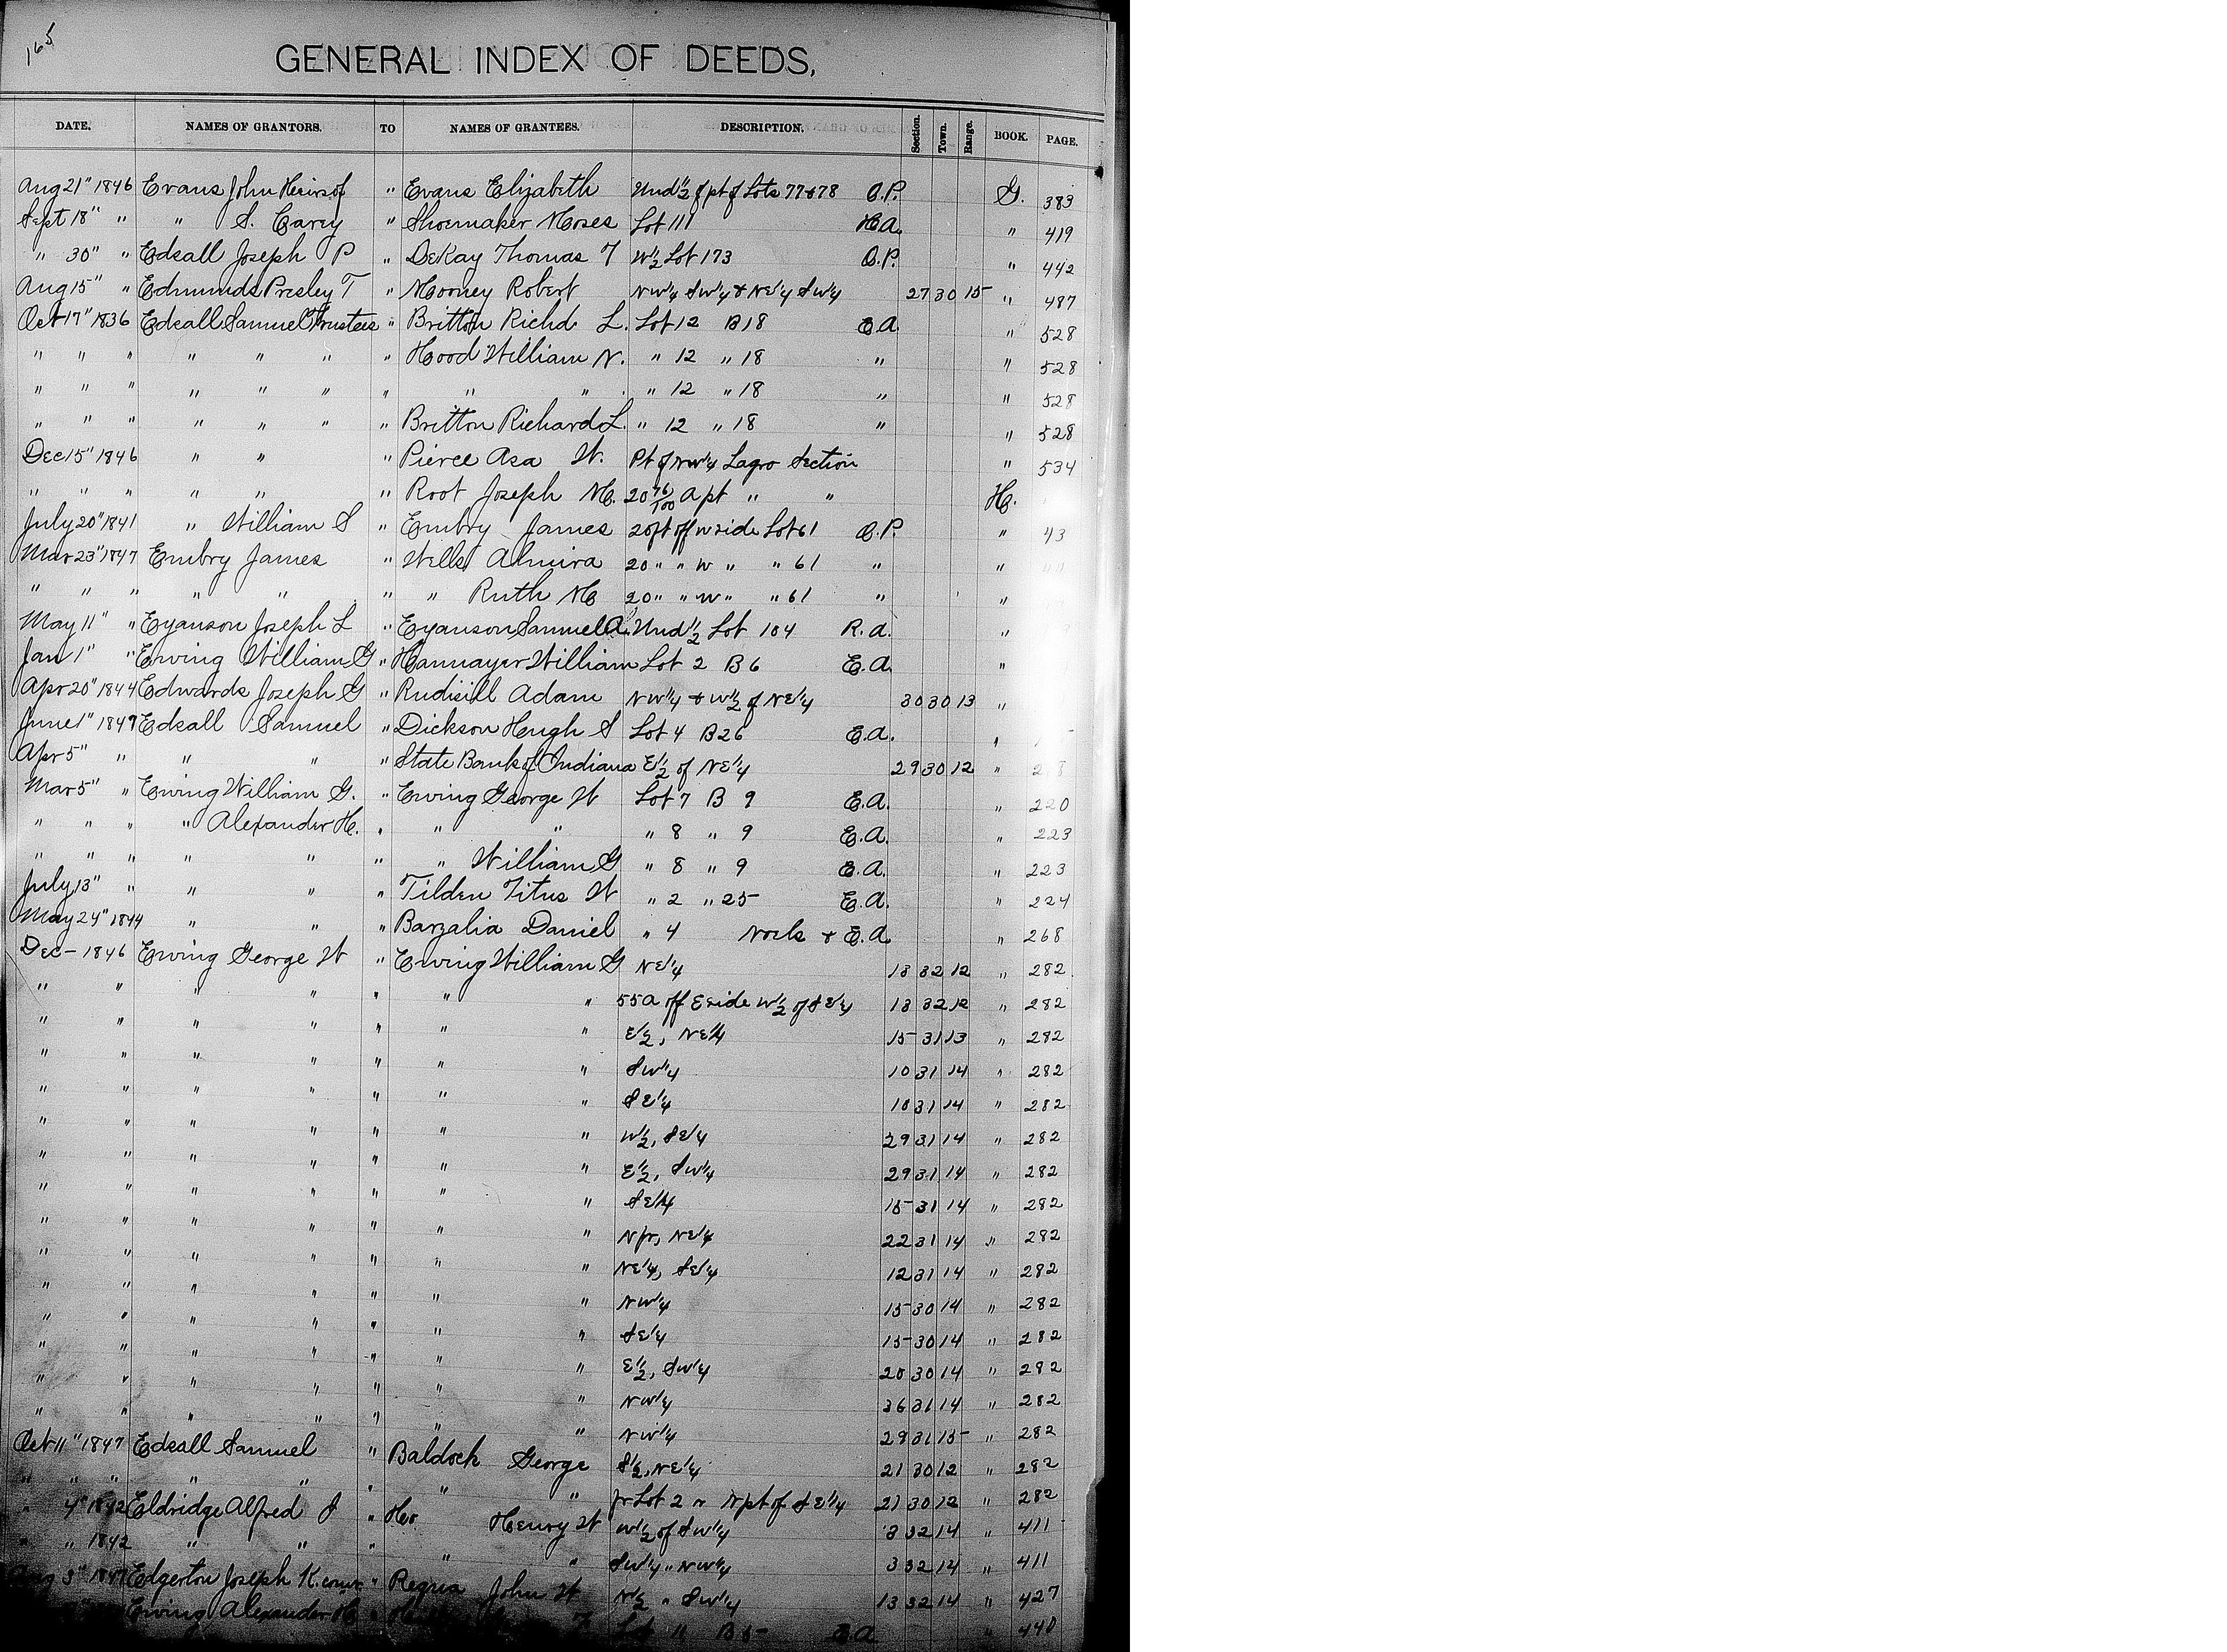 165
GENERAL INDEX OF DEEDS.
DATE. NAMES OF GRANTORS. TO NAMES OF GRANTEES. DESCRIPTION. Section. Town. Range. BOOK. PAGE.
Aug 21" 1846 Evans John Heirs of " Evans Elizabeth Und 1/2 of pt of Lots 77 & 78 O.P. G. 383
Sept 18" " " S. Carey " Shoemaker Moses Lot 111 H.A. " 419
" 30" " Edsall Joseph P " DeKay Thomas T W 1/2 Lot 173 O.P. " 442
Aug 15" " Edmunds Presley T " Mooney Robert NW 1/4 SW 1/4 & NE 1/4 SW 1/4 27 30 15 " 487
Oct 17" 1836 Edsall Samuel Trustees " Britton Richd L. Lot 12 B 18 E.A. " 528
" " " " " " " Hood William N. " 12 " 18 " " 528
" " " " " " " " " " 12 " 18 " " 528
" " " " " " " Britton Richard L. " 12 " 18 " " 528
Dec 15" 1846 " " " Pierce Asa W. Pt of NW 1/4 Lagro Section " 534
" " " " " " Root Joseph M. 20 76/100 A pt " " H.
July 20" 1841 " William S " Embry James 20 ft off w side Lot 61 O.P. " 43
Mar 23" 1847 Embry James " Wells Almira 20 " " W " " 61 " "
" " " " " " " Ruth M 20 " " W " " 61 " "
May 11" " Eyanson Joseph L " Eyanson Samuel A. Und 1/2 Lot 104 R.A. "
Jan 1" " Ewing William G " Hanmayer William Lot 2 B 6 E.A. "
Apr 20" 1844 Edwards Joseph G " Rudisill Adam NW 1/4 & W 1/2 of NE 1/4 30 30 13 "
June 1" 1847 Edsall Samuel " Dickson Hugh S Lot 4 B 26 E.A. "
Apr 5" " " " " State Bank of Indiana E 1/2 of NE 1/4 29 30 12 "
Mar 5" " Ewing William G. " Ewing George W Lot 7 B 9 E.A. " 220
" " " " Alexander H. " " " " 8 " 9 E.A. " 223
" " " " " " " William G " 8 " 9 E.A. " 223
July 13" " " " " Tilden Titus W " 2 " 25 E.A. " 224
May 24" 1844 " " " Barzalia Daniel " 4 Nocks & E.A. " 268
Dec - 1846 Ewing George W " Ewing William G NE 1/4 13 32 12 " 282
" " " " " " " 55 A off E side W 1/2 of SE 1/4 13 32 12 " 282
" " " " " " " E 1/2, NE 1/4 15 31 13 " 282
" " " " " " " SW 1/4 10 31 14 " 282
" " " " " " " SE 1/4 10 31 14 " 282
" " " " " " " W 1/2, SE 1/4 29 31 14 " 282
" " " " " " " E 1/2, SW 1/4 29 31 14 " 282
" " " " " " " SE 1/4 15 31 14 " 282
" " " " " " " N fr, NE 1/4 22 31 14 " 282
" " " " " " " NE 1/4, SE 1/4 12 31 14 " 282
" " " " " " " NW 1/4 15 30 14 " 282
" " " " " " " SE 1/4 15 30 14 " 282
" " " " " " " E 1/2, SW 1/4 20 30 14 " 282
" " " " " " " NW 1/4 36 31 14 " 282
" " " " " " " NW 1/4 29 31 15 " 282
Oct 11" 1847 Edsall Samuel " Baldock George S 1/2, NE 1/4 21 30 12 " 282
" " " " " " " " fr Lot 2 " N pt of SE 1/4 21 30 12 " 282
" 4" 1842 Eldridge Alfred S " Henry W W 1/2 of SW 1/4 3 32 14 " 411
" " 1842 " " " " " SW 1/4 " NW 1/4 3 32 14 " 411
3" 1847 Edgerton Joseph K. " Requa John W N 1/2 " SW 1/4 13 32 14 " 427
Ewing Alexander H " Lot 11 B 5 E.A. " 440